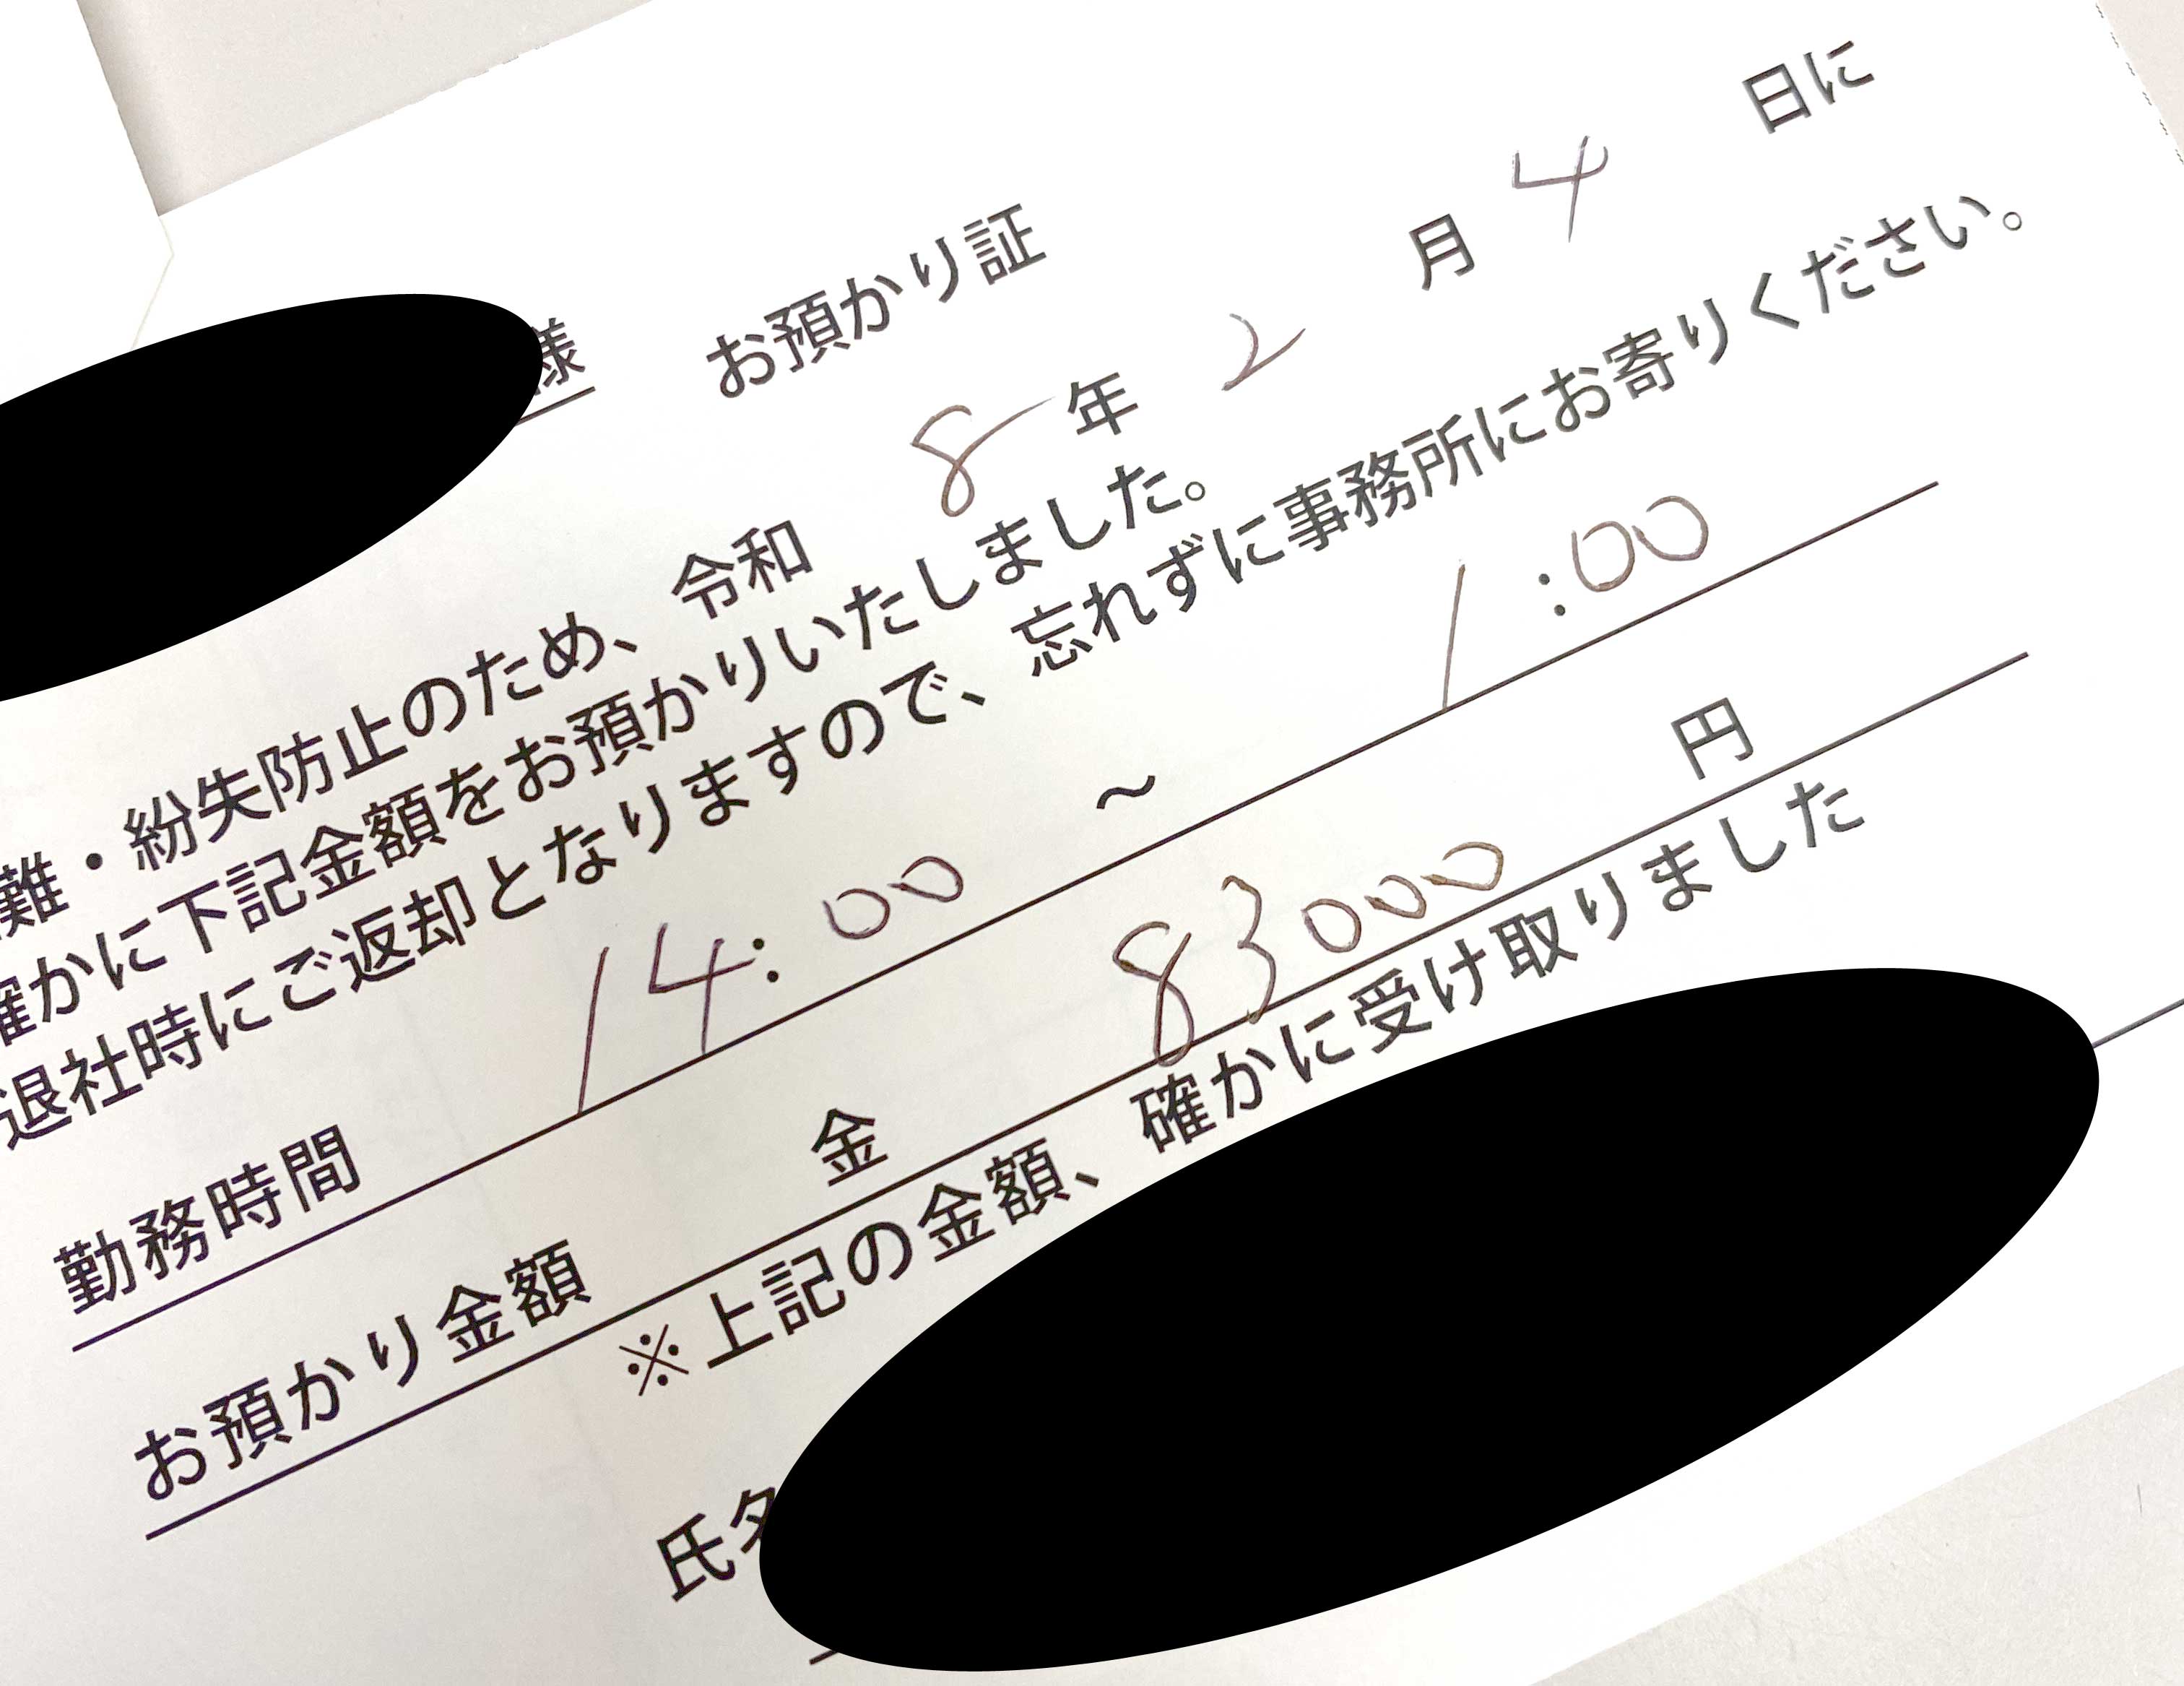 様 お預かり証
難・紛失防止のため、令和 8 年 2 月 4 日に
確かに下記金額をお預かりいたしました。
退社時にご返却となりますので、忘れずに事務所にお寄りください。
勤務時間 14:00 ～ 1:00
お預かり金額 金 83000 円
※上記の金額、確かに受け取りました
氏名